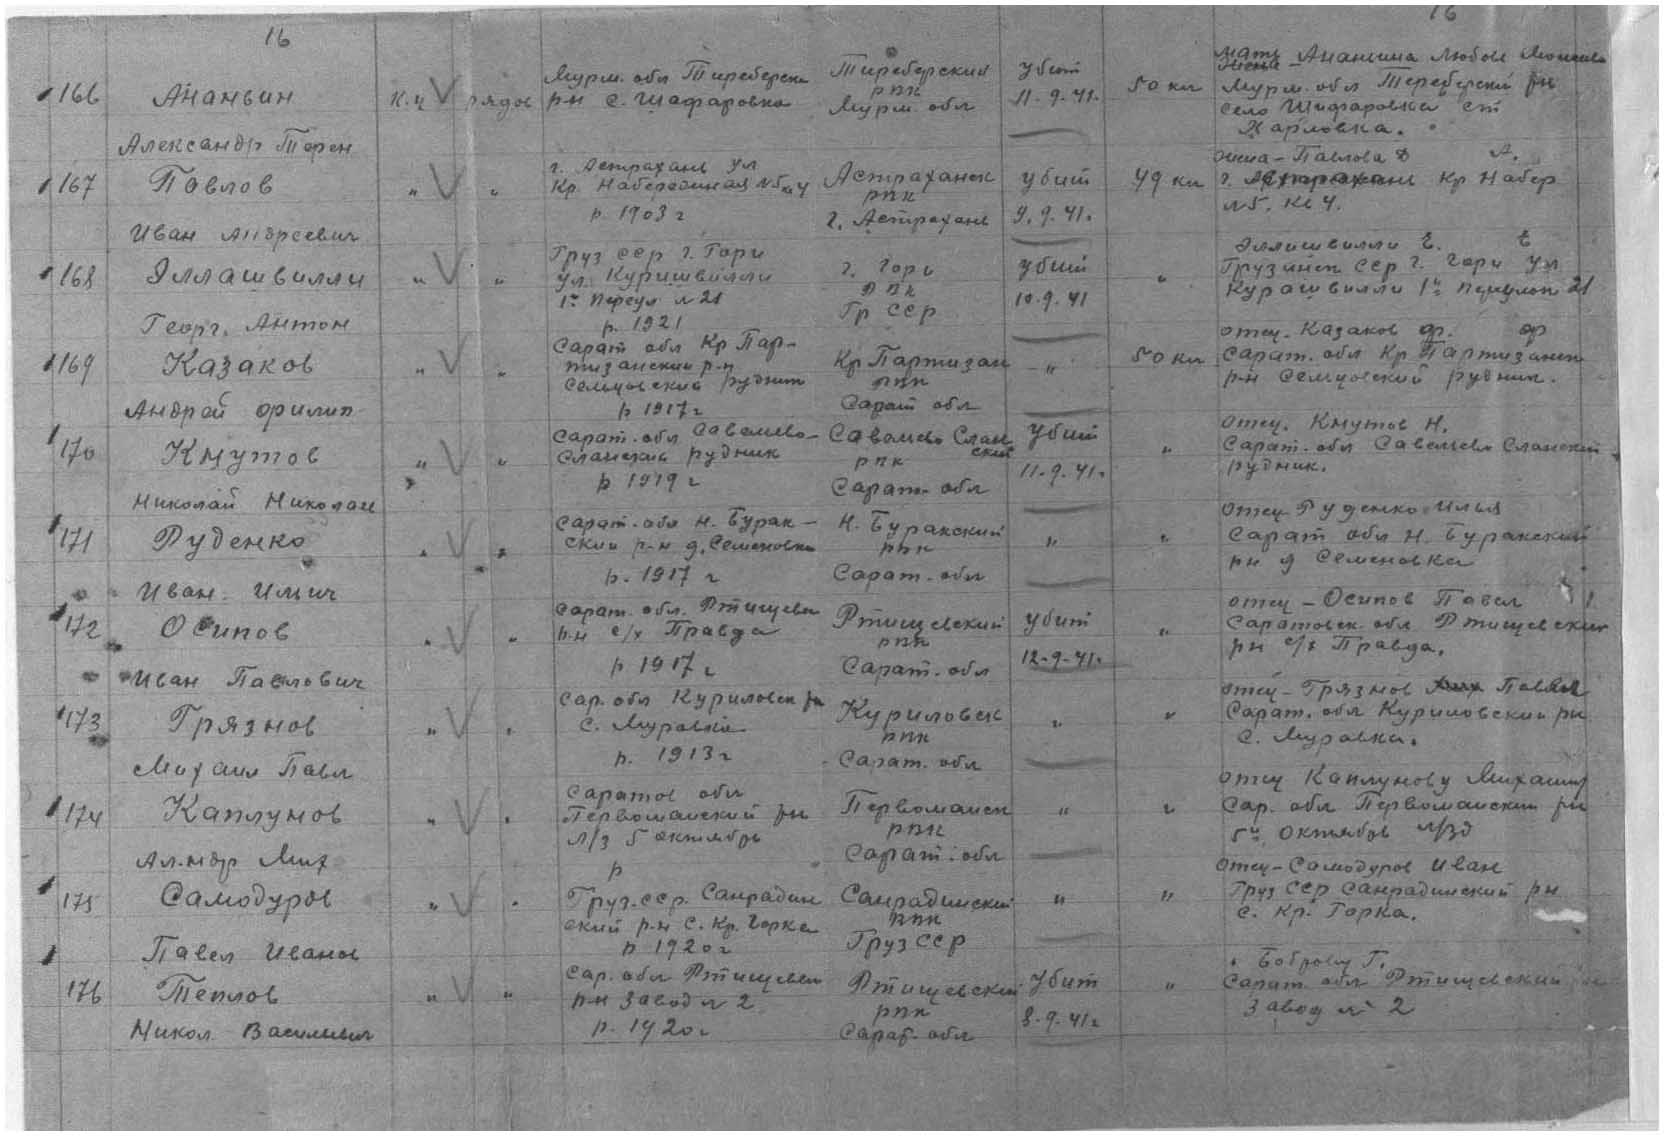 16
16
166 Ананьин к-ц рядов Мурм. обл Териберски р-н с. Шафаровка Териберский рпк Мурм. обл убит 11-9-41. 50 км мать Ананьина Любовь
Мурм. обл Териберский рн село Шафаровка ст Харловка.
Александр Терен
167 Павлов " " г. Астрахань ул Кр. Набережная №5 р. 1903 г Астраханск рпк г. Астрахань убит 9.9.41. 49 км жена - Павлова А.
г. Астрахань Кр Набер №5. кв 4.
Иван Андреевич
168 Эллашвилли " " Груз ССР г. Гори ул. Куришвилли 1й переул №21 р. 1921 г. Гори рпк Гр ССР убит 10-9-41 " Эллишвилли
Грузинск ССР г. Гори ул Курашвилли 1й переулок 21
Георг. Антон
169 Казаков " " Сарат обл Кр Пар-тизанский р-н рудник р 1917 г Кр Партизан рпк Сарат обл " 50 км отец - Казаков ф.
Сарат. обл Кр Партизанск р-н рудник.
Андрей Филип
170 Кнутов " " Сарат. обл Савельево-Сланский рудник р 1919 г Савельево Сланский рпк Сарат. обл убит 11-9-41. " отец. Кнутов Н.
Сарат. обл Савельево Сланский рудник.
Николай Николаи
171 Руденко " " Сарат. обл Н. Бурак-ский р-н д. Семеновка р. 1917 г Н. Буракский рпк Сарат. обл " " отец Руденко Илья
Сарат обл Н. Буракский рн д Семеновка
Иван Ильич
172 Осипов " " Сарат. обл. Ртищевск р-н с/х Правда р 1917 г Ртищевский рпк Сарат. обл убит 12-9-41. " отец - Осипов Павел
Саратовск. обл Ртищевский рн с/х Правда.
Иван Павлович
173 Грязнов " " Сар. обл Куриловск рн с. Муравка р. 1913 г Куриловск рпк Сарат. обл " " отец - Грязнов Павел
Сарат. обл Куриловский рн с. Муравка.
Михаил Павл
174 Каплунов " " Саратов обл Первомайский рн л/з 5 октябрь р Первомайск рпк Сарат. обл " " отец Каплунову Михаилу
Сар. обл Первомайский рн 5й октябрь
Ал-ндр Мих
175 Самодуров " " Груз. ССР. Санрадин ский р-н с. Кр. Горка р 1920 г Санрадинский рпк Груз ССР " " отец - Самодуров Иван
Груз ССР Санрадинский рн с. Кр. Горка.
Павел Иванов
176 Теплов " " Сар. обл Ртищевск р-н завод № 2 р. 1920 г Ртищевский рпк Сарат. обл убит 8-9-41 г " Боброву Г.
Сарат. обл Ртищевский завод № 2
Никол Васильевич